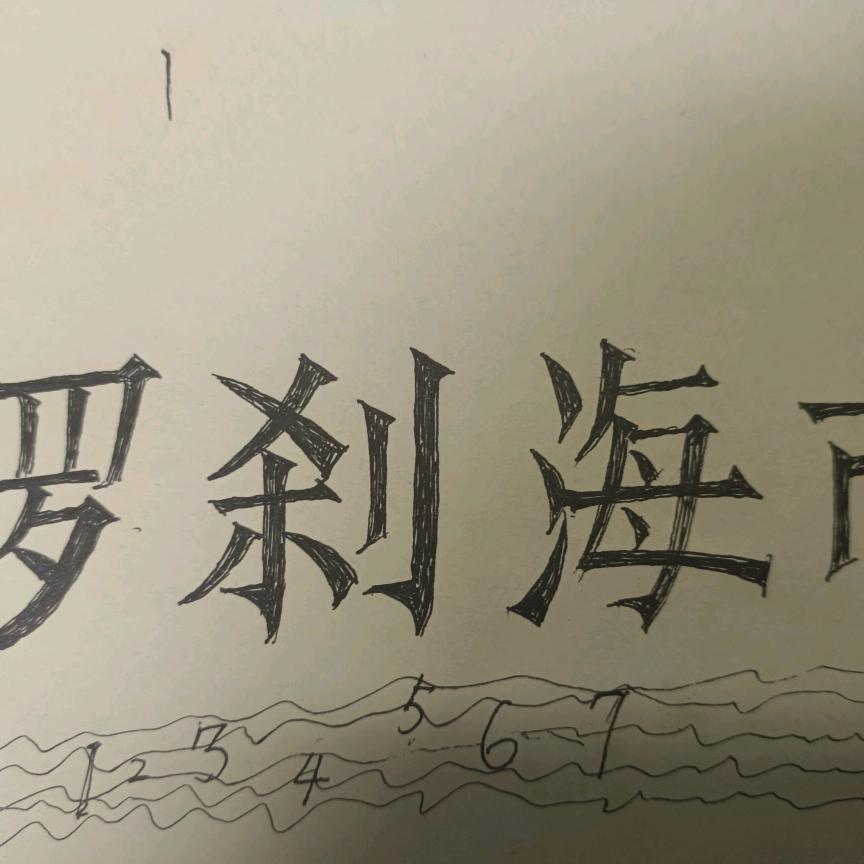 罗刹海
1 2 3 4 5 6 7